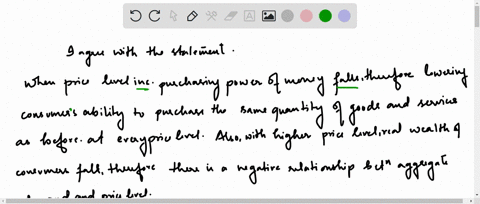 I agree with the statement.
When price level inc. purchasing power of money falls. therefore lowering
consumer's ability to purchase the same quantity of goods and services
as before. at every price level. Also, with higher price level, real wealth of
consumers fall, therefore there is a negative relationship betn aggregate
demand and price level.